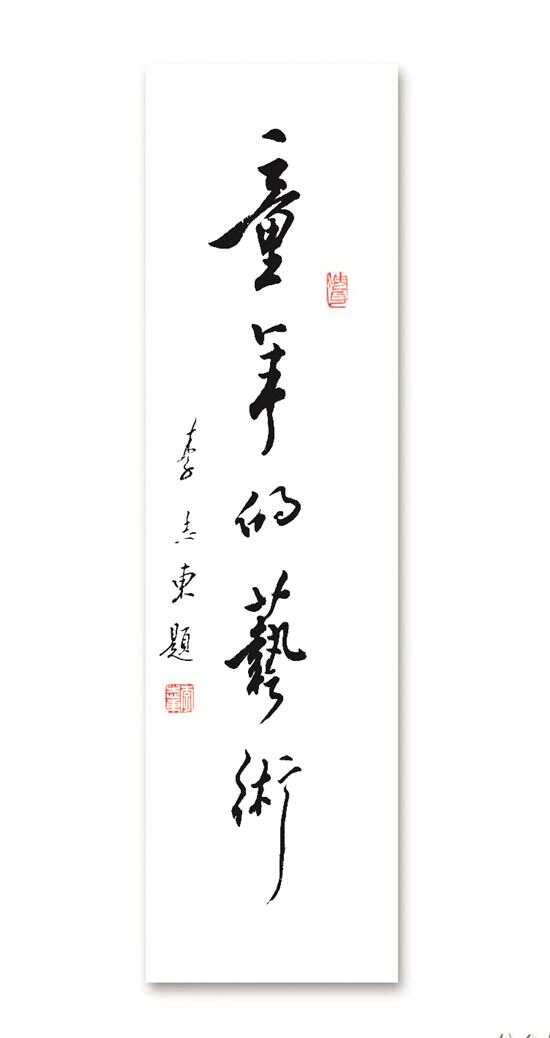 童年的藝術
李志東題